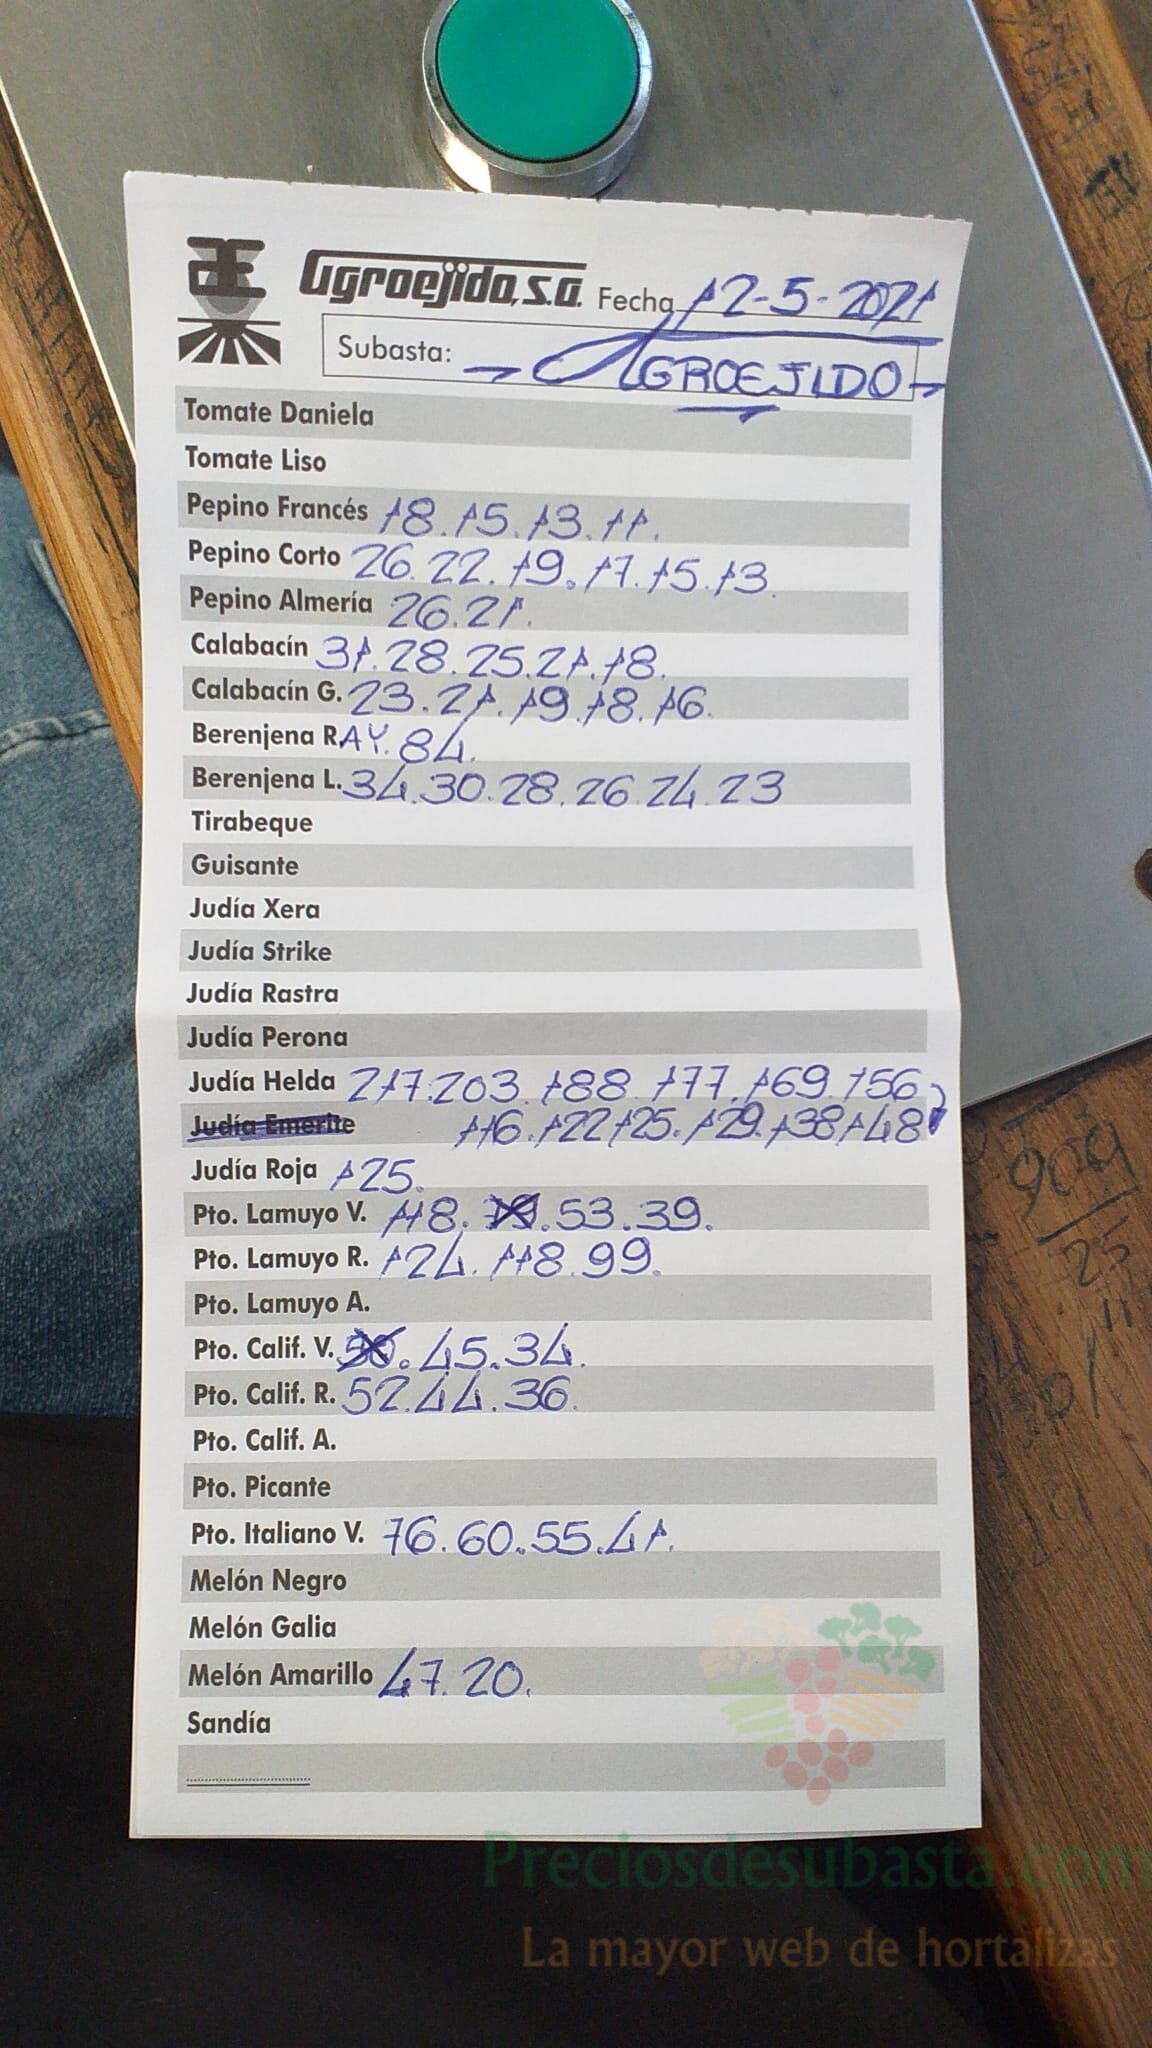 Agroejido, S.A. Fecha 12-5-2021
Subasta: AGROEJIDO
Tomate Daniela
Tomate Liso
Pepino Francés 18.15.13.11.
Pepino Corto 26.22.19.17.15.13.
Pepino Almería 26.21.
Calabacín 31.28.25.21.18.
Calabacín G. 23.21.19.18.16.
Berenjena R.AY.84.
Berenjena L. 34.30.28.26.24.23
Tirabeque
Guisante
Judía Xera
Judía Strike
Judía Rastra
Judía Perona
Judía Helda 217.203.188.177.169.156
Judía Emerite 116.122.125.129.138.148
Judía Roja 125.
Pto. Lamuyo V. 118. 79.53.39.
Pto. Lamuyo R. 124.118.99.
Pto. Lamuyo A.
Pto. Calif. V. 50.45.34.
Pto. Calif. R. 52.44.36.
Pto. Calif. A.
Pto. Picante
Pto. Italiano V. 76.60.55.41.
Melón Negro
Melón Galia
Melón Amarillo 47.20.
Sandía
Preciosdesubasta.com
La mayor web de hortalizas